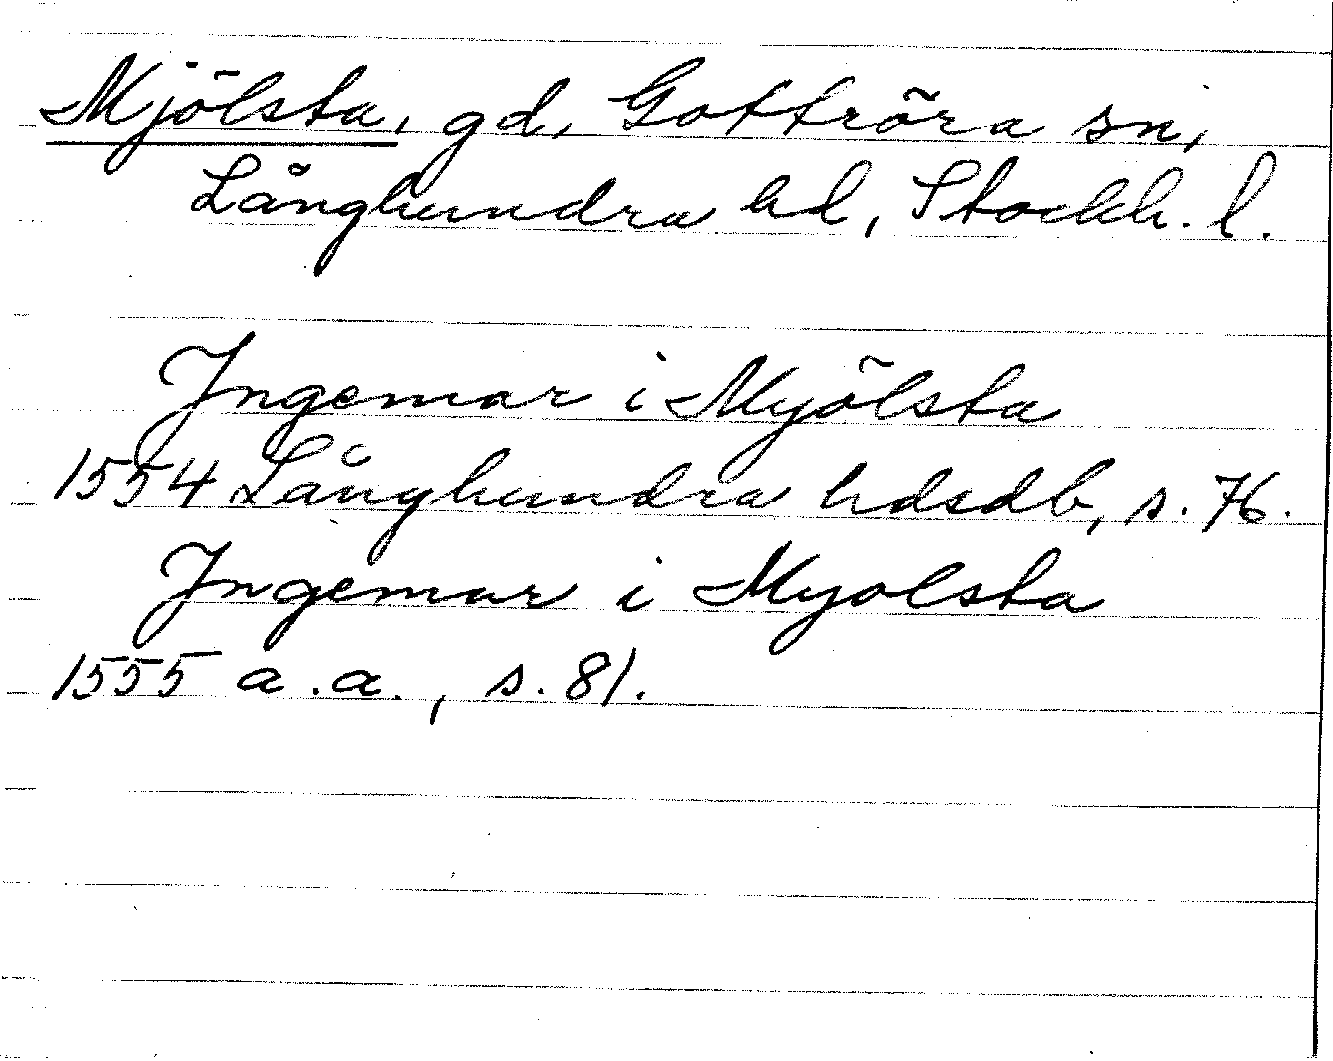 Mjölsta, gd, Gottröra sn,
Långhundra hd, Stockh. l.
Ingemar i Myölsta
1554 Långhundra hdsdb, s. 76.
Ingemar i Myolsta
1555 a.a., s. 81.